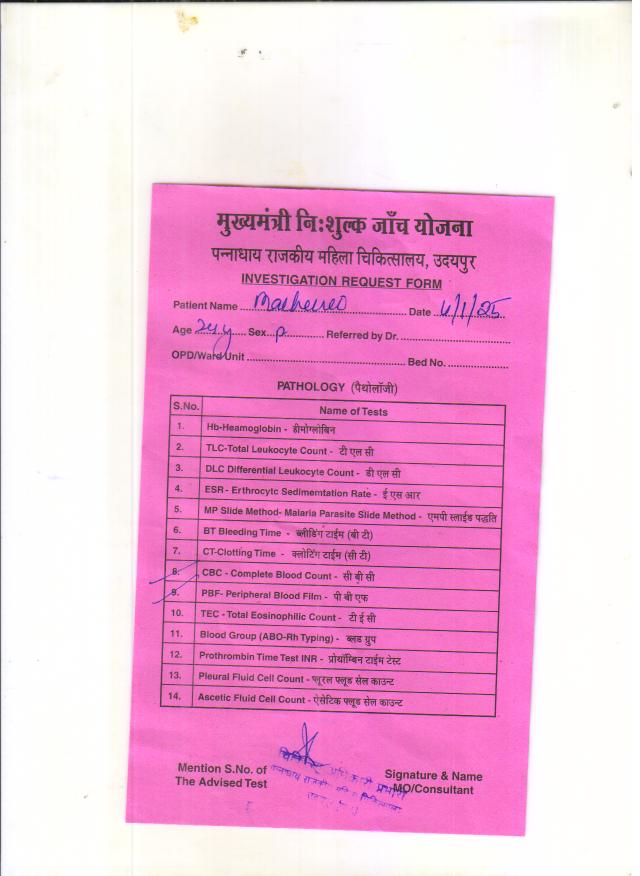 मुख्यमंत्री निःशुल्क जाँच योजना
पन्नाधाय राजकीय महिला चिकित्सालय, उदयपुर
INVESTIGATION REQUEST FORM
Patient Name ........ Date ........
Age 24y Sex ........ Referred by Dr. ........
OPD/Ward Unit ........ Bed No. ........
PATHOLOGY (पैथोलॉजी)
S.No. Name of Tests
1. Hb-Heamoglobin - हीमोग्लोबिन
2. TLC-Total Leukocyte Count - टी एल सी
3. DLC Differential Leukocyte Count - डी एल सी
4. ESR - Erthrocytc Sedimemtation Rate - ई एस आर
5. MP Slide Method- Malaria Parasite Slide Method - एमपी स्लाईड पद्धति
6. BT Bleeding Time - ब्लीडिंग टाईम (बी टी)
7. CT-Clotting Time - क्लोटिंग टाईम (सी टी)
8. CBC - Complete Blood Count - सी बी सी
9. PBF- Peripheral Blood Film - पी बी एफ
10. TEC - Total Eosinophilic Count - टी ई सी
11. Blood Group (ABO-Rh Typing) - ब्लड ग्रुप
12. Prothrombin Time Test INR - प्रोथॉम्बिन टाईम टेस्ट
13. Pleural Fluid Cell Count - प्लूरल फ्लूड सेल काउन्ट
14. Ascetic Fluid Cell Count - ऐसेटिक फ्लूड सेल काउन्ट
Mention S.No. of
The Advised Test
Signature & Name
MO/Consultant